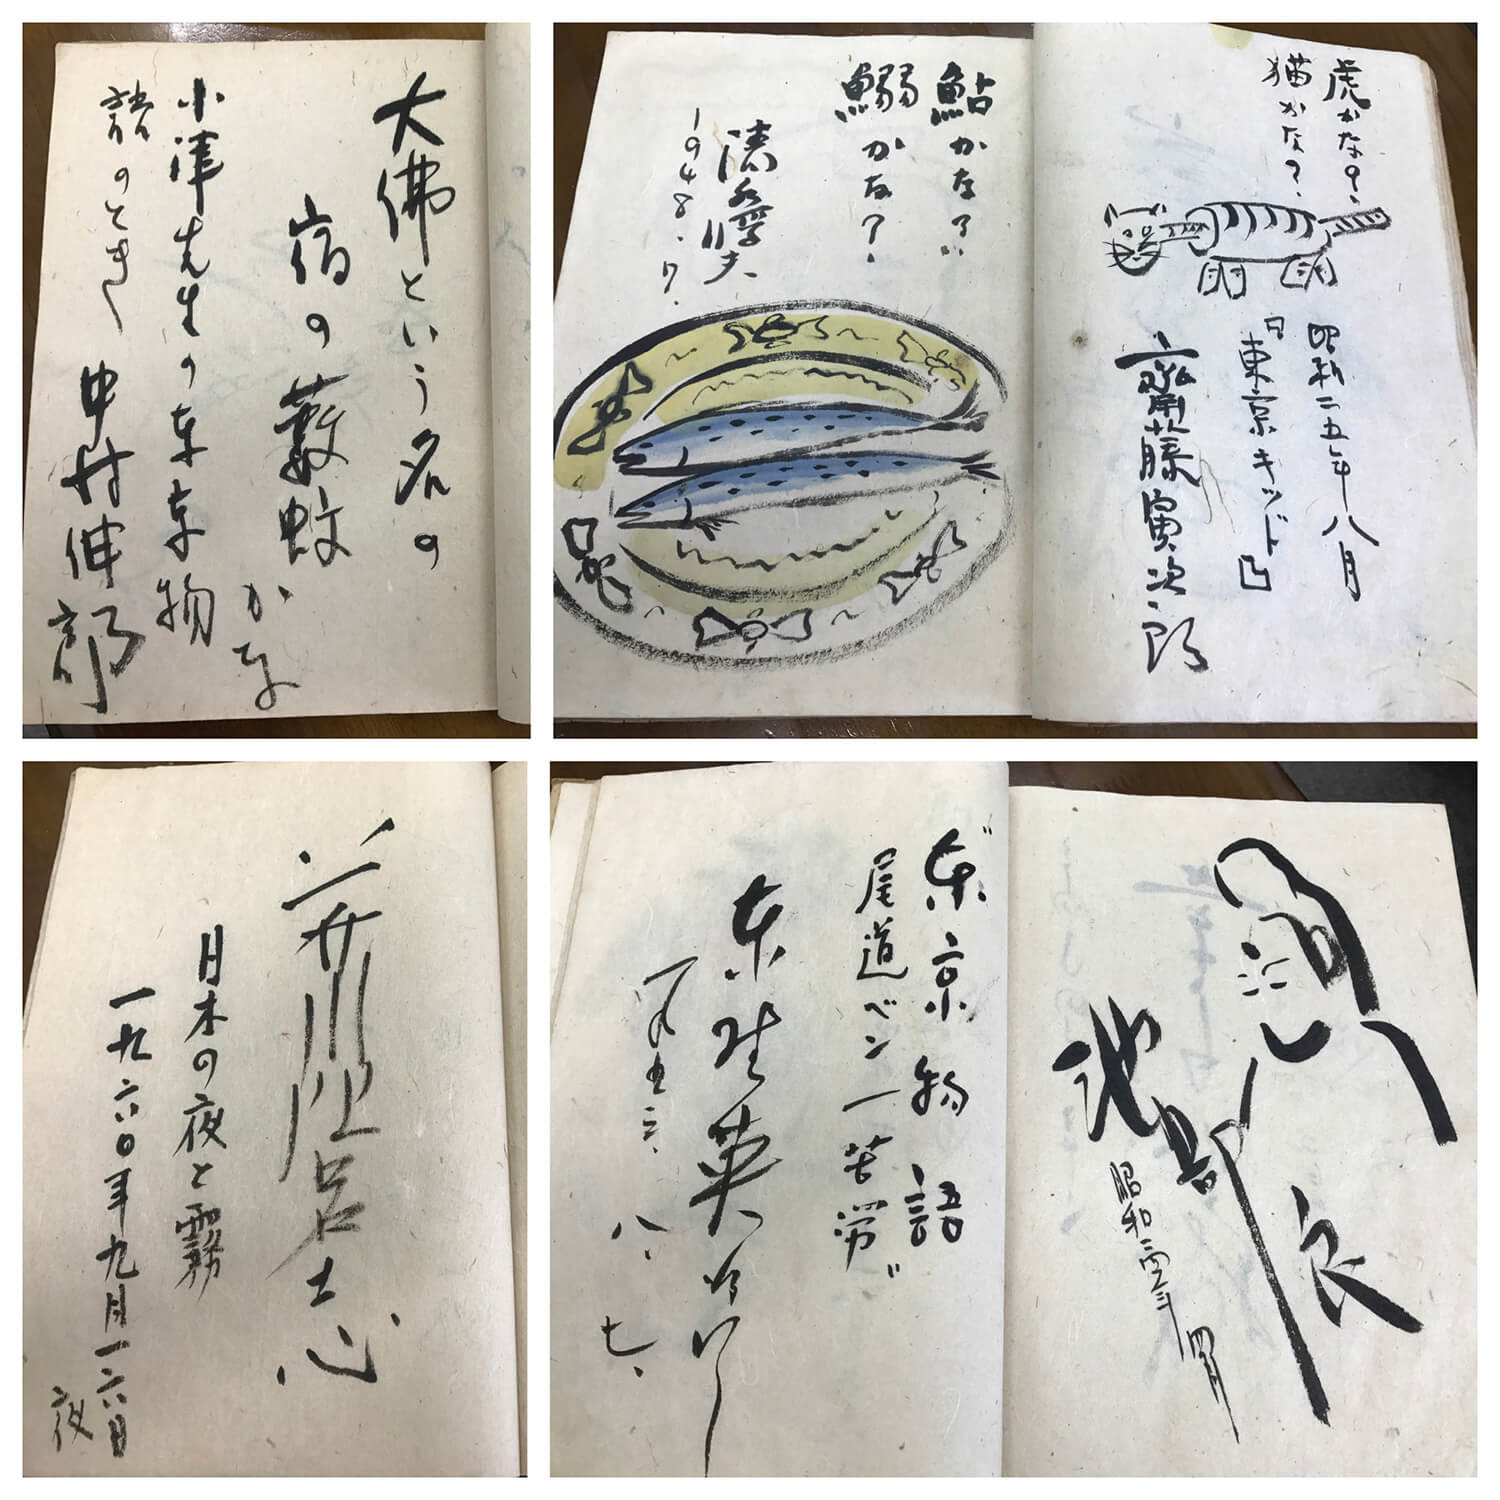 大佛という名の
宿の藪蚊かな
小津先生の東京物
語のとき
中村伸郎
虎かな?、
猫かな?、
昭和二五年八月
『東京キッド』
齋藤寅次郎
鮎かな?、
鰯かな?、
1948.7.
芥川比呂志
日本の夜と霧
一九六〇年九月一六日
夜
池部良
昭和
東京物語
尾道ベン一苦労
東野英治郎
一九五三、八、七、